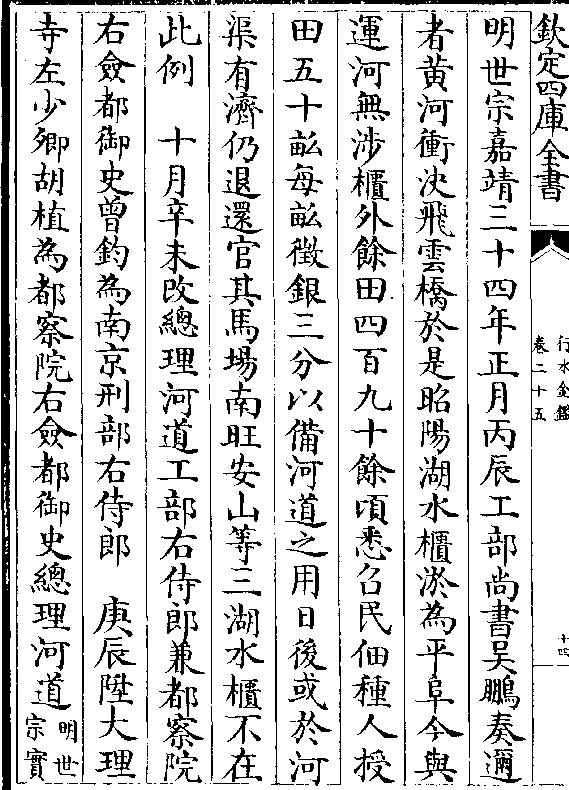 欽定四庫全書
行水金鑑
卷二十五
十四
明世宗嘉靖三十四年正月丙辰工部尚書吴鵬奏邇
者黄河衝決飛雲橋於是昭陽湖水櫃淤為平阜今與
運河無涉櫃外餘田四百九十餘頃悉召民佃種人授
田五十畝每畝徵銀三分以備河道之用日後或於河
渠有濟仍退還官其馬場南旺安山等三湖水櫃不在
此例　十月辛未改總理河道工部右侍郎兼都察院
右僉都御史曾鈞為南京刑部右侍郎　庚辰陞大理
寺左少卿胡植為都察院右僉都御史總理河道明世
宗實